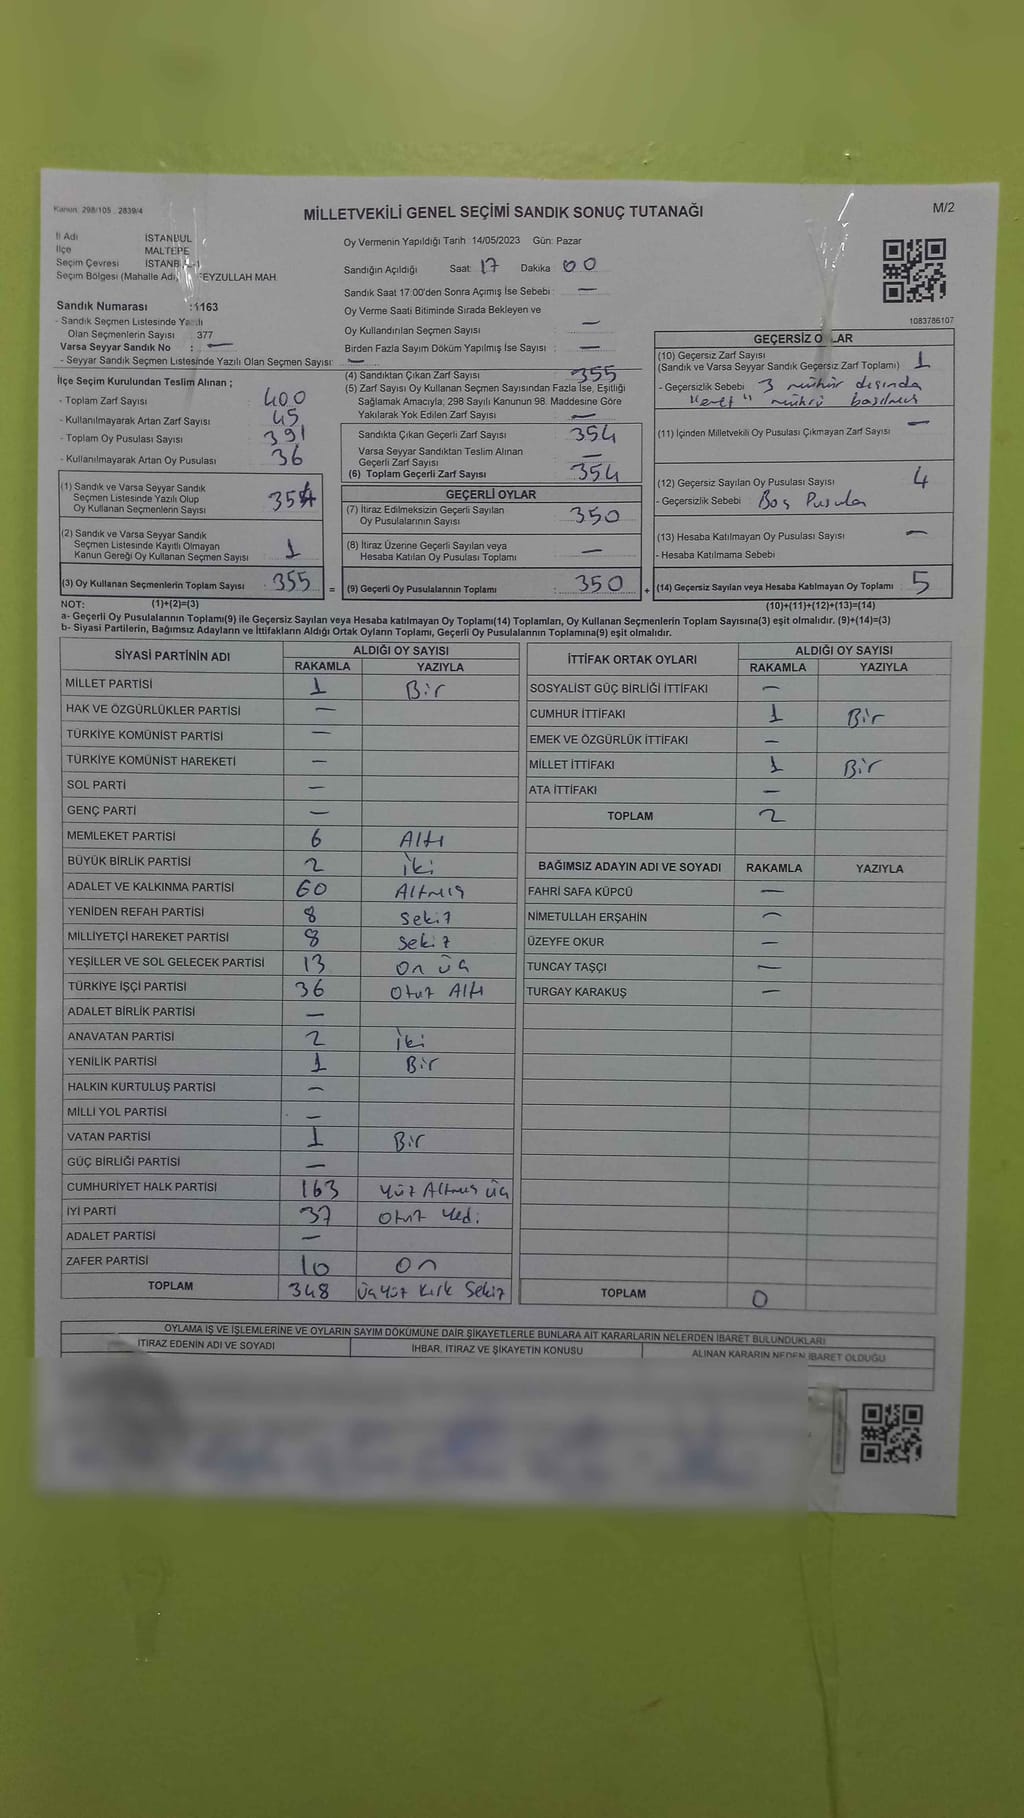 Kanun: 298/105 , 2839/4
MİLLETVEKİLİ GENEL SEÇİMİ SANDIK SONUÇ TUTANAĞI
M/2
İl Adı İSTANBUL
İlçe MALTEPE
Seçim Çevresi
Seçim Bölgesi (Mahalle FEYZULLAH MAH.
Sandık Numarası :1163
- Sandık Seçmen Listesinde Yazılı
Olan Seçmenlerin Sayısı 377
Varsa Seyyar Sandık No : —
- Seyyar Sandık Seçmen Listesinde Yazılı Olan Seçmen Sayısı: —
İlçe Seçim Kurulundan Teslim Alınan ;
- Toplam Zarf Sayısı 400
- Kullanılmayarak Artan Zarf Sayısı 45
- Toplam Oy Pusulası Sayısı 391
- Kullanılmayarak Artan Oy Pusulası 36
(1) Sandık ve Varsa Seyyar Sandık
Seçmen Listesinde Yazılı Olup
Oy Kullanan Seçmenlerin Sayısı 354
(2) Sandık ve Varsa Seyyar Sandık
Seçmen Listesinde Kayıtlı Olmayan
Kanun Gereği Oy Kullanan Seçmen Sayısı 1
(3) Oy Kullanan Seçmenlerin Toplam Sayısı 355 =
Oy Vermenin Yapıldığı Tarih 14/05/2023 Gün: Pazar
Sandığın Açıldığı Saat: 17 Dakika 00
Sandık Saat 17:00'den Sonra Açımış İse Sebebi : —
Oy Verme Saati Bitiminde Sırada Bekleyen ve
Oy Kullandırılan Seçmen Sayısı —
Birden Fazla Sayım Döküm Yapılmış İse Sayısı : —
(4) Sandıktan Çıkan Zarf Sayısı 355
(5) Zarf Sayısı Oy Kullanan Seçmen Sayısından Fazla İse, Eşitliği
Sağlamak Amacıyla; 298 Sayılı Kanunun 98. Maddesine Göre
Yakılarak Yok Edilen Zarf Sayısı —
Sandıkta Çıkan Geçerli Zarf Sayısı 354
Varsa Seyyar Sandıktan Teslim Alınan
Geçerli Zarf Sayısı —
(6) Toplam Geçerli Zarf Sayısı 354
GEÇERLİ OYLAR
(7) İtiraz Edilmeksizin Geçerli Sayılan
Oy Pusulalarının Sayısı 350
(8) İtiraz Üzerine Geçerli Sayılan veya
Hesaba Katılan Oy Pusulası Toplamı —
(9) Geçerli Oy Pusulalarının Toplamı 350 +
1083786107
GEÇERSİZ OYLAR
(10) Geçersiz Zarf Sayısı
(Sandık ve Varsa Seyyar Sandık Geçersiz Zarf Toplamı) 1
- Geçersizlik Sebebi 3 mühür dışında
"evet" mührü basılmış
(11) İçinden Milletvekili Oy Pusulası Çıkmayan Zarf Sayısı —
(12) Geçersiz Sayılan Oy Pusulası Sayısı 4
- Geçersizlik Sebebi Boş Pusula
(13) Hesaba Katılmayan Oy Pusulası Sayısı —
- Hesaba Katılmama Sebebi
(14) Geçersiz Sayılan veya Hesaba Katılmayan Oy Toplamı 5
NOT: (1)+(2)=(3)
(10)+(11)+(12)+(13)=(14)
a- Geçerli Oy Pusulalarının Toplamı(9) ile Geçersiz Sayılan veya Hesaba katılmayan Oy Toplamı(14) Toplamları, Oy Kullanan Seçmenlerin Toplam Sayısına(3) eşit olmalıdır. (9)+(14)=(3)
b- Siyasi Partilerin, Bağımsız Adayların ve İttifakların Aldığı Ortak Oyların Toplamı, Geçerli Oy Pusulalarının Toplamına(9) eşit olmalıdır.
SİYASİ PARTİNİN ADI ALDIĞI OY SAYISI
RAKAMLA YAZIYLA
MİLLET PARTİSİ 1 Bir
HAK VE ÖZGÜRLÜKLER PARTİSİ —
TÜRKİYE KOMÜNİST PARTİSİ —
TÜRKİYE KOMÜNİST HAREKETİ —
SOL PARTİ —
GENÇ PARTİ —
MEMLEKET PARTİSİ 6 Altı
BÜYÜK BİRLİK PARTİSİ 2 İki
ADALET VE KALKINMA PARTİSİ 60 Altmış
YENİDEN REFAH PARTİSİ 8 Sekiz
MİLLİYETÇİ HAREKET PARTİSİ 8 Sekiz
YEŞİLLER VE SOL GELECEK PARTİSİ 13 On üç
TÜRKİYE İŞÇİ PARTİSİ 36 Otuz Altı
ADALET BİRLİK PARTİSİ —
ANAVATAN PARTİSİ 2 İki
YENİLİK PARTİSİ 1 Bir
HALKIN KURTULUŞ PARTİSİ —
MİLLİ YOL PARTİSİ —
VATAN PARTİSİ 1 Bir
GÜÇ BİRLİĞİ PARTİSİ —
CUMHURİYET HALK PARTİSİ 163 Yüz Altmış üç
İYİ PARTİ 37 Otuz Yedi
ADALET PARTİSİ —
ZAFER PARTİSİ 10 On
TOPLAM 348 Üçyüz Kırk Sekiz
İTTİFAK ORTAK OYLARI ALDIĞI OY SAYISI
RAKAMLA YAZIYLA
SOSYALİST GÜÇ BİRLİĞİ İTTİFAKI —
CUMHUR İTTİFAKI 1 Bir
EMEK VE ÖZGÜRLÜK İTTİFAKI —
MİLLET İTTİFAKI 1 Bir
ATA İTTİFAKI —
TOPLAM 2
BAĞIMSIZ ADAYIN ADI VE SOYADI RAKAMLA YAZIYLA
FAHRİ SAFA KÜPCÜ —
NİMETULLAH ERŞAHİN —
ÜZEYFE OKUR —
TUNCAY TAŞÇI —
TURGAY KARAKUŞ —
TOPLAM 0
OYLAMA İŞ VE İŞLEMLERİNE VE OYLARIN SAYIM DÖKÜMÜNE DAİR ŞİKAYETLERLE BUNLARA AİT KARARLARIN NELERDEN İBARET BULUNDUKLARI
İTİRAZ EDENİN ADI VE SOYADI İHBAR, İTİRAZ VE ŞİKAYETİN KONUSU ALINAN KARARIN NEDEN İBARET OLDUĞU